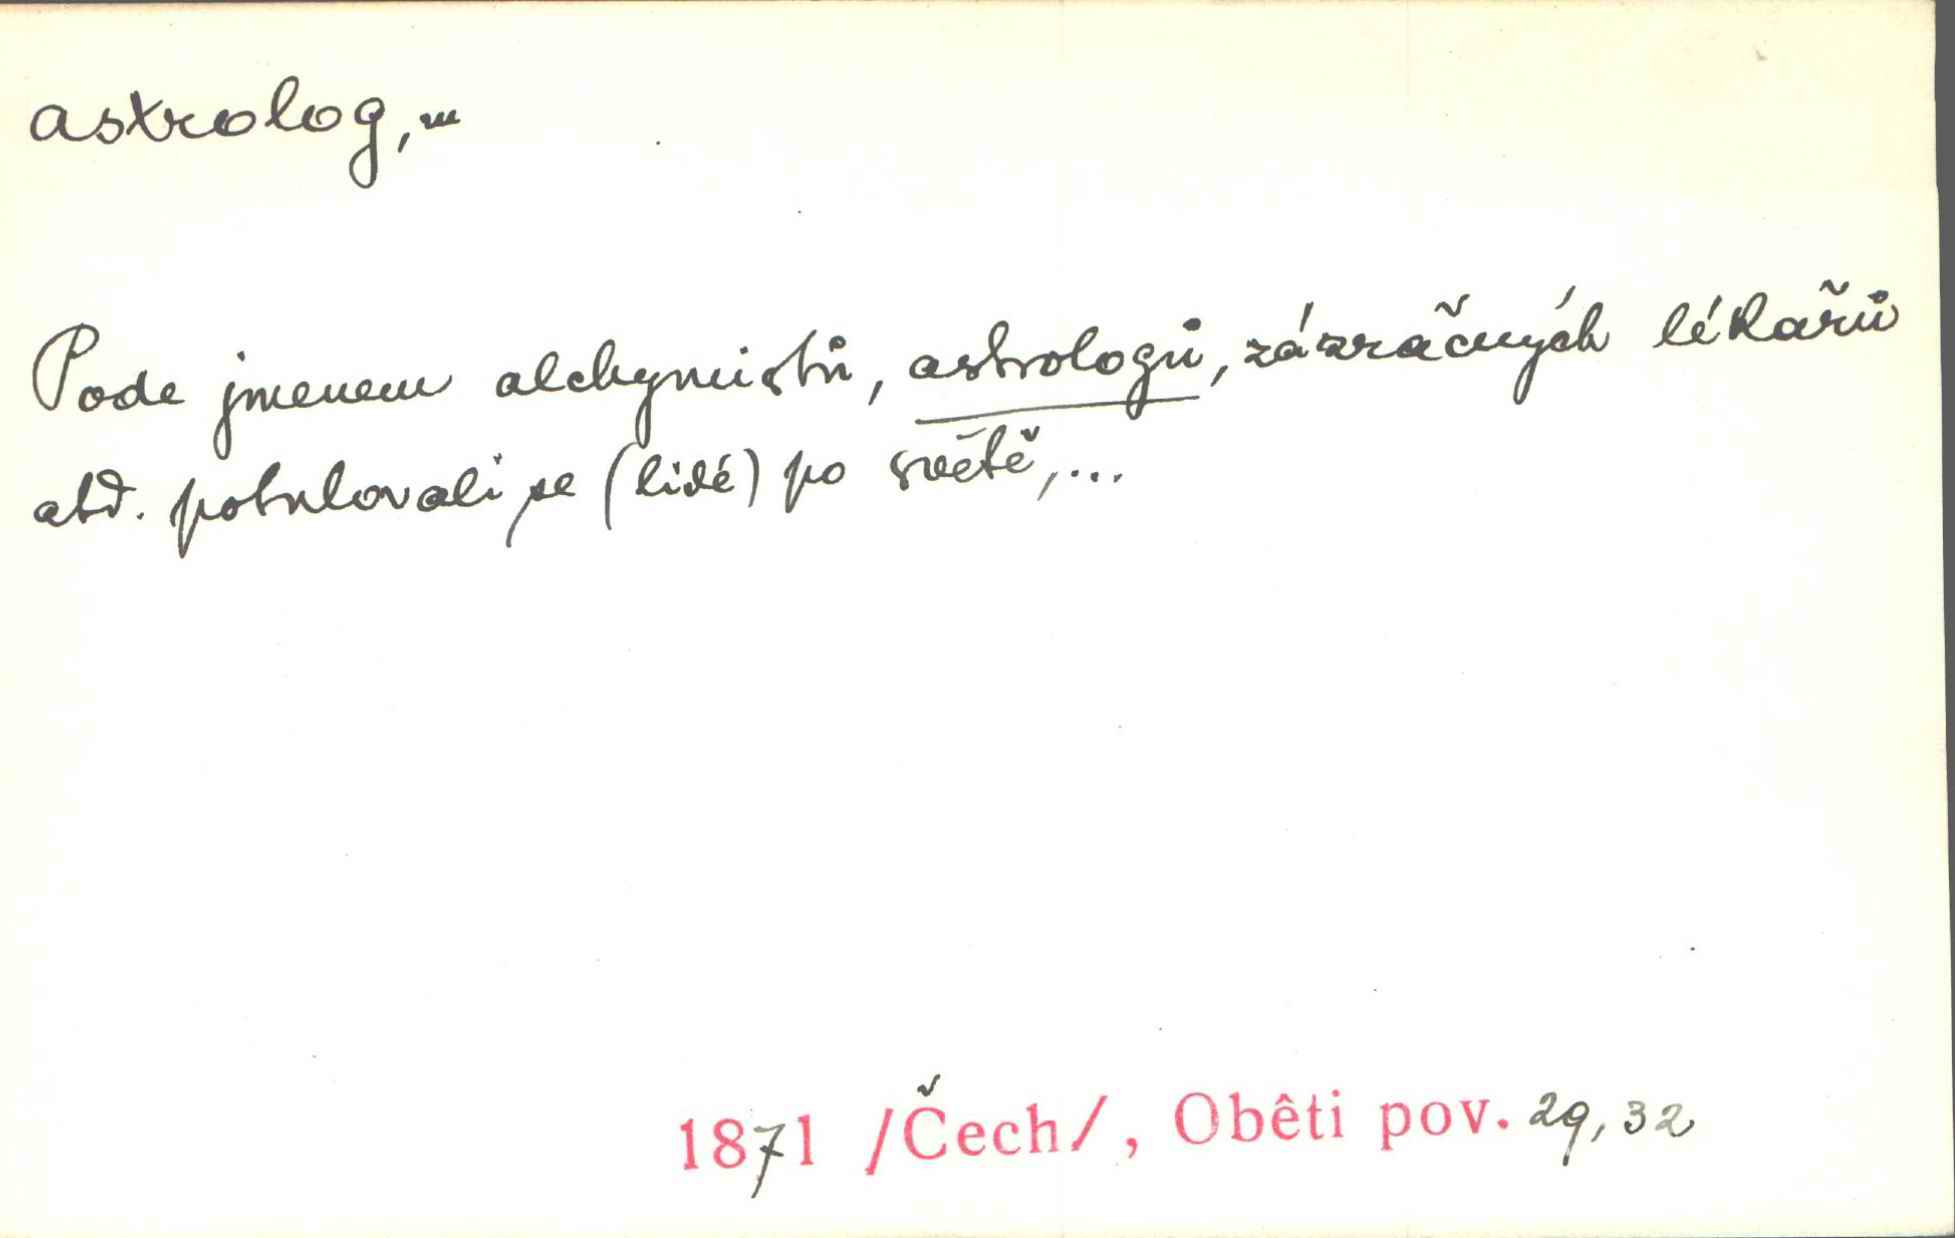 astrolog, m
Pode jmenem alchymistů, astrologů, zázračných lékařů
atd. potulovali se (lidé) po světě,...
1871 /Čech/, Obêti pov. 29, 32